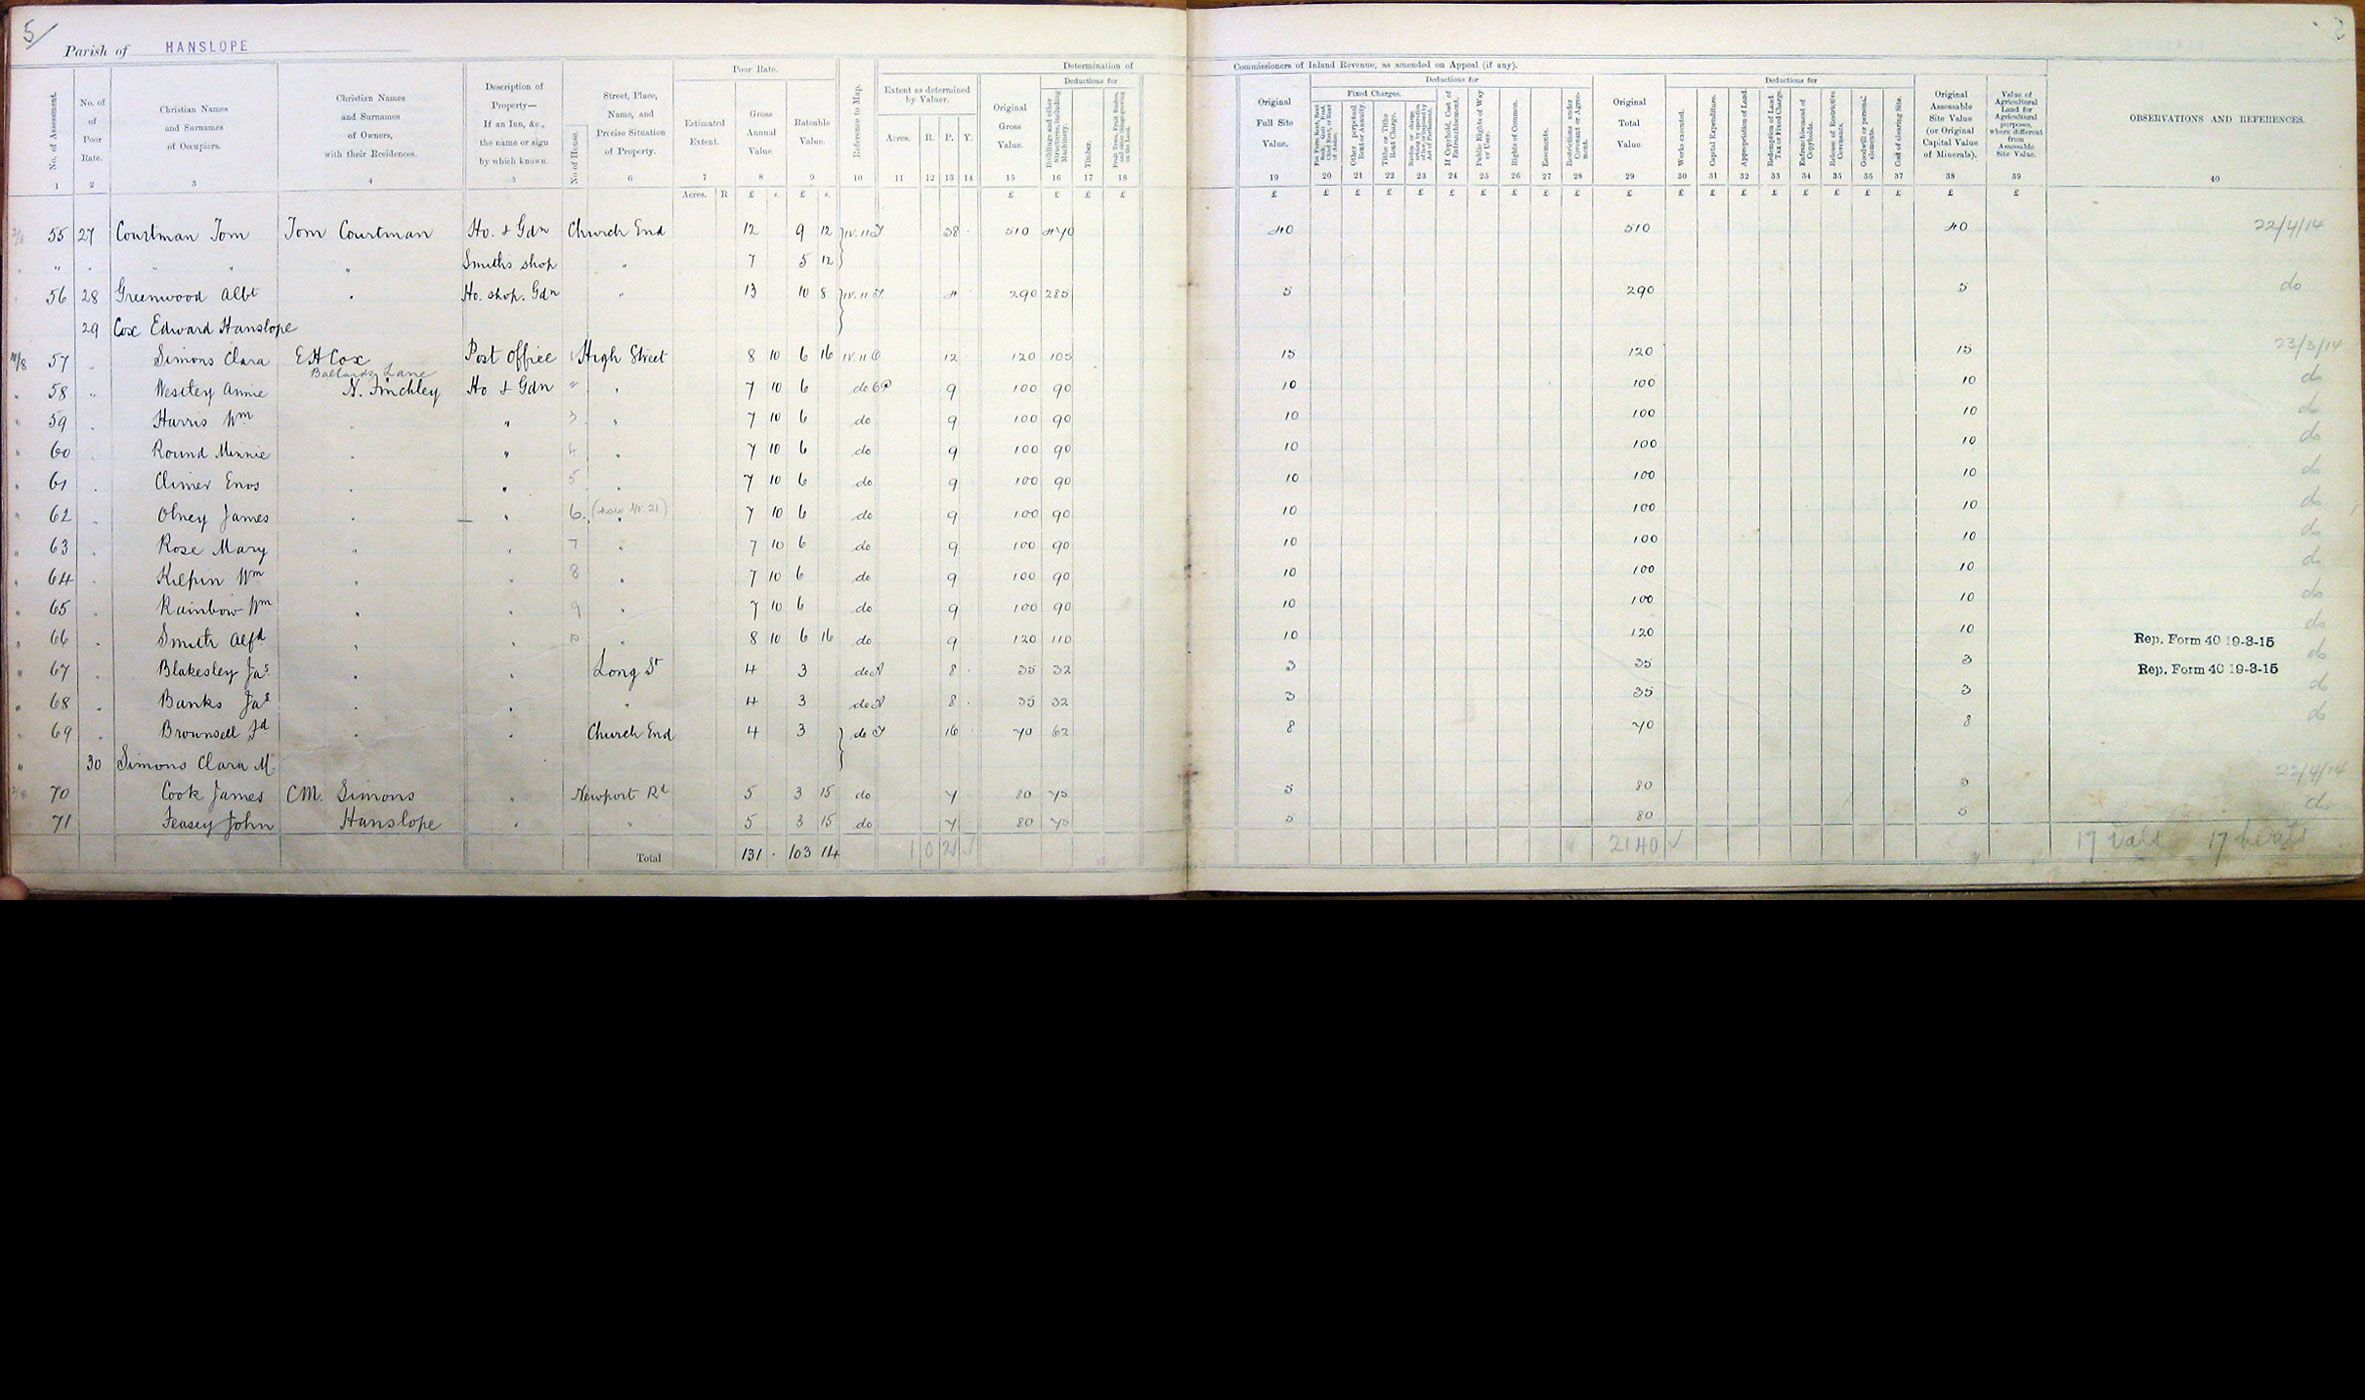 5/
Parish of HANSLOPE
Poor Rate. Determination of Commissioners of Inland Revenue, as amended on Appeal (if any).
No. of Assessment. 1
No. of Poor Rate. 2
Christian Names and Surnames of Occupiers. 3
Christian Names and Surnames of Owners, with their Residences. 4
Description of Property— If an Inn, &c., the name or sign by which known. 5
No. of House.
Street, Place, Name, and Precise Situation of Property. 6
Estimated Extent. 7 Acres. R
Gross Annual Value. 8 £ s.
Rateable Value. 9 £ s.
Reference to Map. 10
Extent as determined by Valuer. Acres. 11 R. 12 P. 13 Y. 14
Original Gross Value. 15 £
Deductions for
Buildings and other Structures, including Machinery. 16 £
Timber. 17 £
Fruit Trees, Fruit Bushes, and other things growing on the Land. 18 £
Original Full Site Value. 19 £
Deductions for
Fixed Charges.
20 £
Other perpetual Rent or Annuity. 21 £
Tithe or Tithe Rent Charge. 22 £
Burden or charge arising by operation of law or imposed by Act of Parliament. 23 £
If Copyhold, Cost of Enfranchisement. 24 £
Public Rights of Way or User. 25 £
Rights of Common. 26 £
Easements. 27 £
Restrictions under Covenant or Agreement. 28 £
Original Total Value 29 £
Deductions for
Works executed. 30 £
Capital Expenditure. 31 £
Appropriation of Land. 32 £
Redemption of Land Tax or Fixed Charge. 33 £
Enfranchisement of Copyholds. 34 £
Release of Restrictive Covenants. 35 £
Goodwill or personal elements. 36 £
Cost of clearing Site. 37 £
Original Assessable Site Value (or Original Capital Value of Minerals). 38 £
Value of Agricultural Land for Agricultural purposes, where different from Assessable Site Value. 39 £
OBSERVATIONS AND REFERENCES. 40
55 27 Courtman Tom Tom Courtman Ho. & Gdn Church End 12 9 12 IV.11 38 510 470 40 510 40 22/4/14
" " " " Smiths shop " 7 5 12
56 28 Greenwood Albt " Ho. shop. Gdn " 13 10 8 IV.11 4 290 285 5 290 5 do
29 Cox Edward Hanslope
57 " Simons Clara E H Cox Post Office 1 High Street 8 10 6 16 IV.11 12 120 105 15 120 15 23/3/14
Ballards Lane
58 " Westley Annie N. Finchley Ho & Gdn " " 7 10 6 do 9 100 90 10 100 10 do
59 " Harris Wm " " 3 " 7 10 6 do 9 100 90 10 100 10 do
60 " Round Minnie " " 4 " 7 10 6 do 9 100 90 10 100 10 do
61 " Climer Enos " " 5 " 7 10 6 do 9 100 90 10 100 10 do
62 " Olney James " " 6. (now No 21) " 7 10 6 do 9 100 90 10 100 10 do
63 " Rose Mary " " 7 " 7 10 6 do 9 100 90 10 100 10 do
64 " Kilpin Wm " " 8 " 7 10 6 do 9 100 90 10 100 10 do
65 " Rainbow Wm " " 9 " 7 10 6 do 9 100 90 10 100 10 do
66 " Smith Alfd " " 10 " 8 10 6 16 do 9 120 110 10 120 10 Rep. Form 40 19-3-15 do
67 " Blakesley Jas " " Long St 4 3 do 8 35 32 3 35 3 Rep. Form 40 19-3-15 do
68 " Banks Jas " " " 4 3 do 8 35 32 3 35 3 do
69 " Brownsell Jd " " Church End 4 3 do 16 70 62 8 70 8 do
30 Simons Clara M.
70 Cook James C M. Simons " Newport Rd 5 3 15 do 7 80 75 5 80 5 22/4/14
71 Feasey John Hanslope " " 5 3 15 do 7 80 75 5 80 5 do
Total 131 103 14 1 0 21 2140 17 vals 17